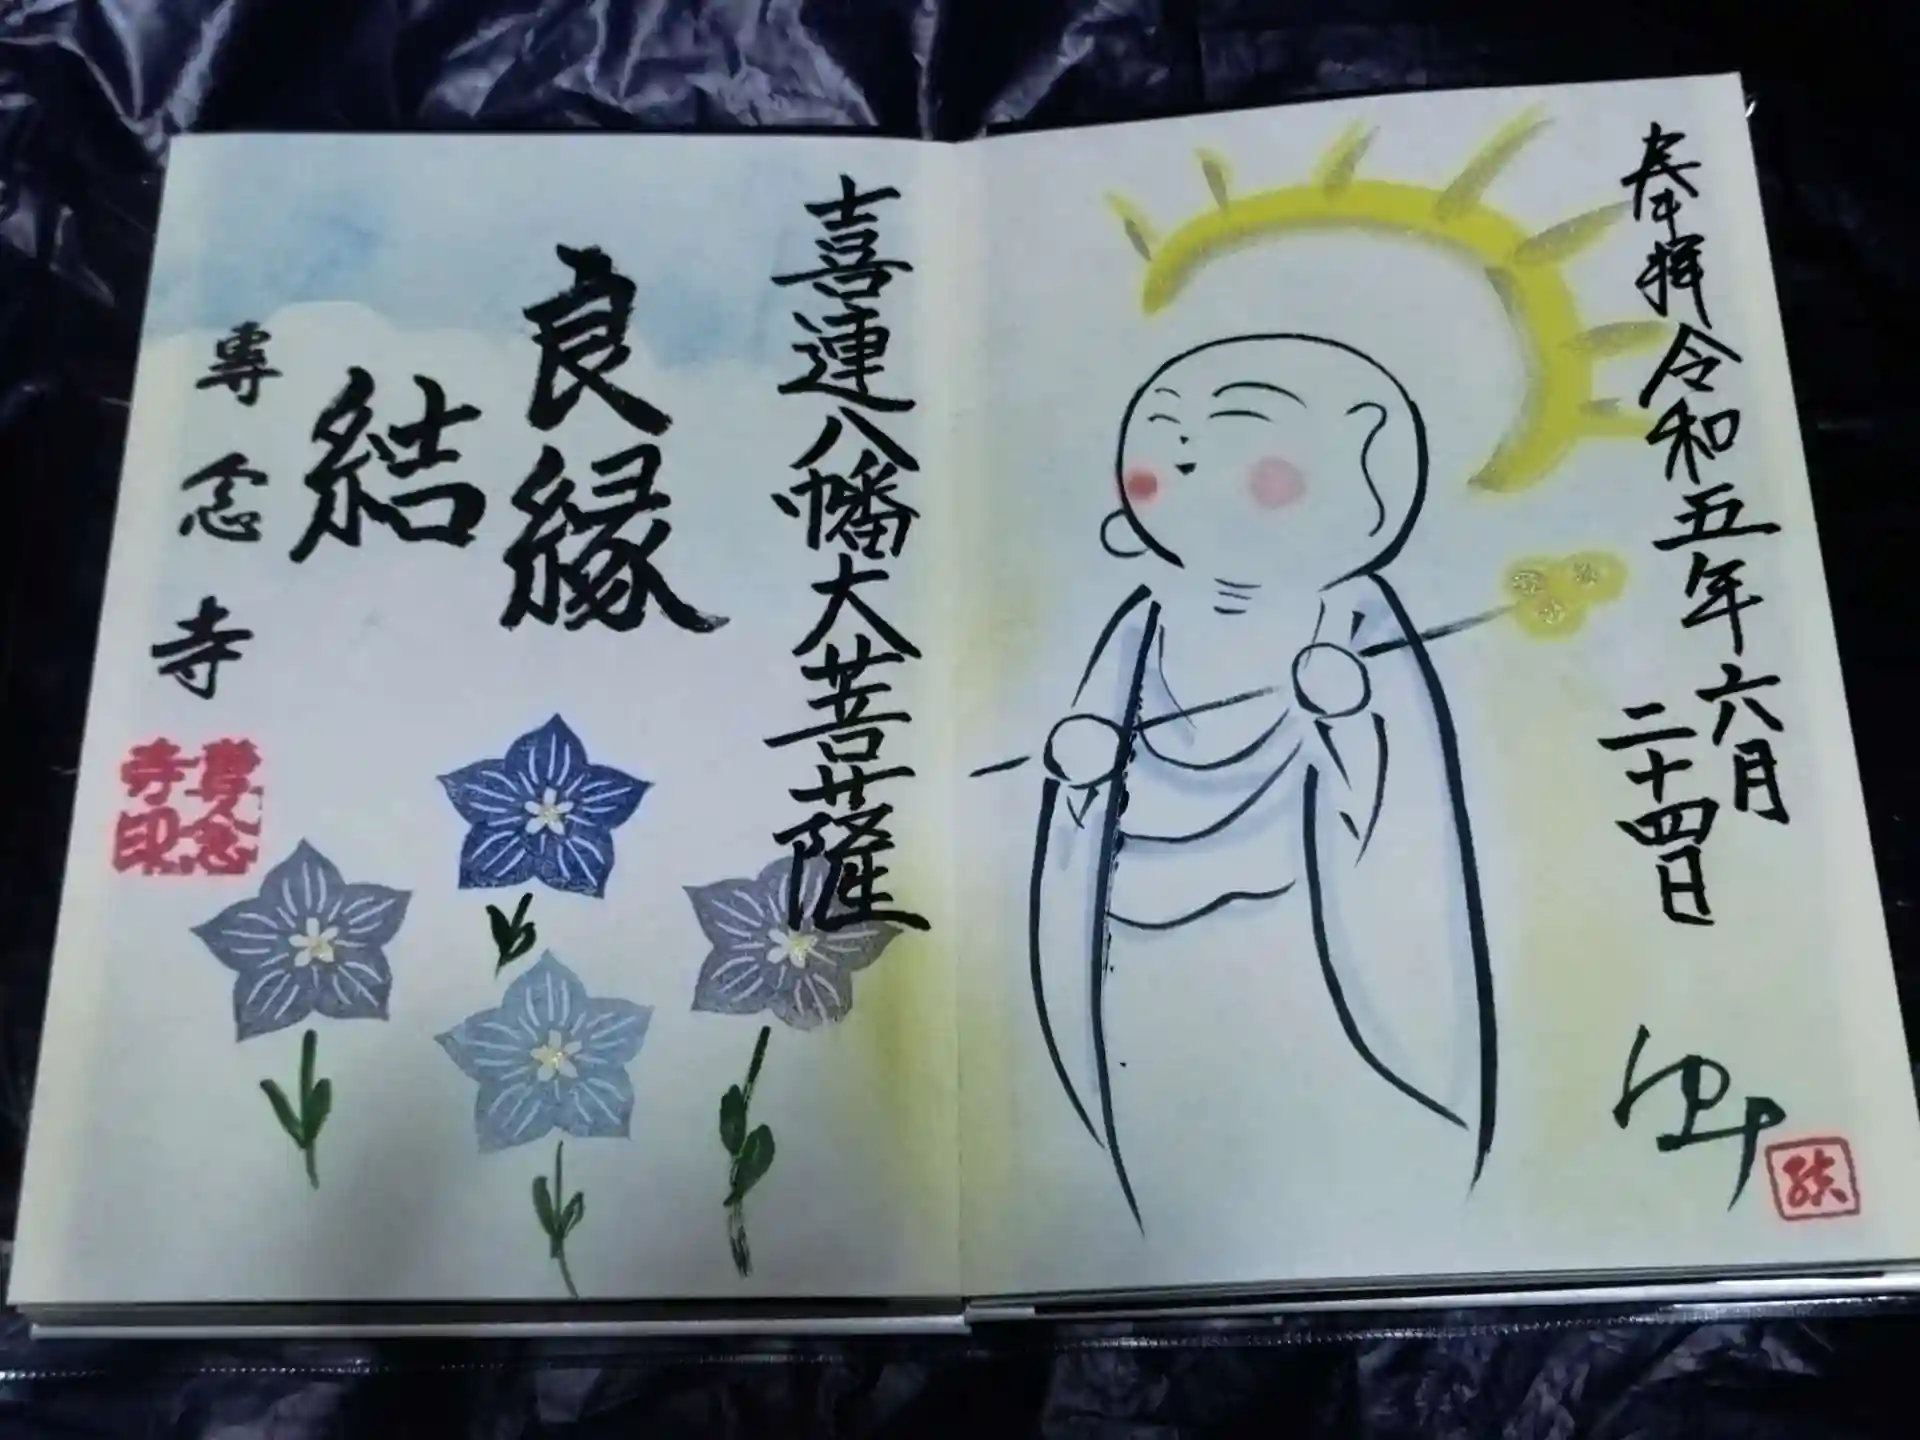 奉拝 令和五年六月
二十四日
喜連八幡大菩薩
良縁
結
專念寺
專念
寺印